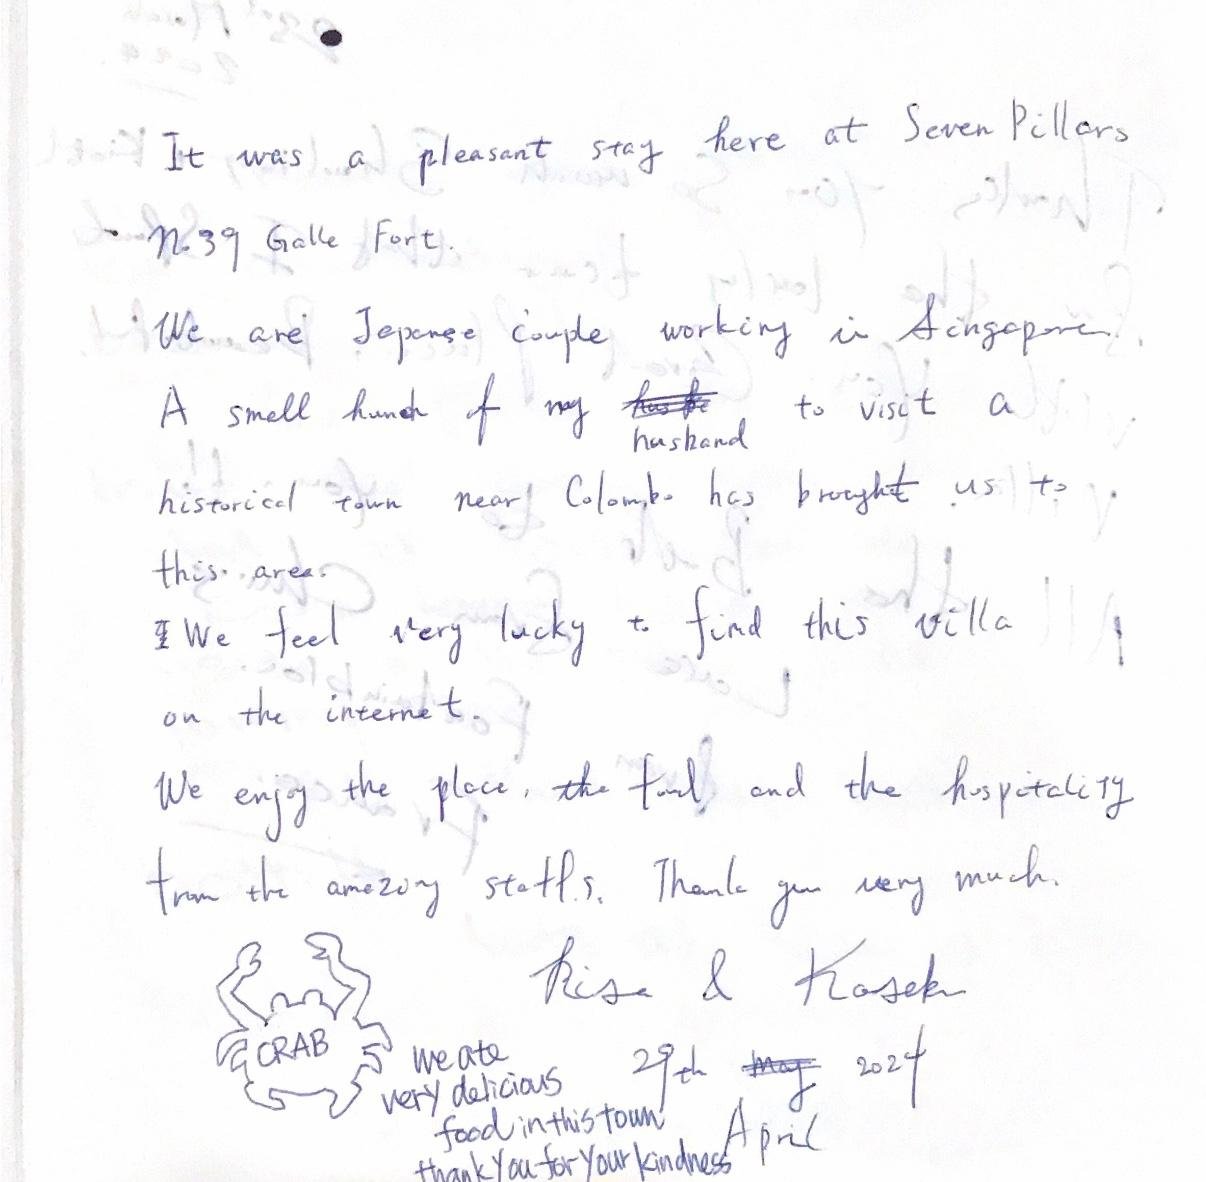 It was a pleasant stay here at Seven Pillars
No.39 Galle Fort.
We are Japanese couple working in Singapore.
A small hunch of my husband to visit a
historical town near Colombo has brought us to
this area.
We feel very lucky to find this villa
on the internet.
We enjoy the place, the food and the hospitality
from the amazing staffs. Thank you very much.
Risa & Kosek
29th May 2024
April
CRAB
we ate
very delicious
food in this town
thank you for your kindness